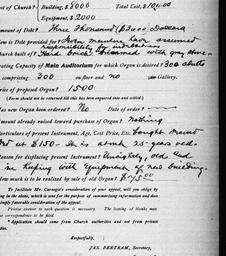 of Church? Building, $8000 Total Cost, $10400
Equipment, $2000
Amount of Debt? Three Thousand ($3000) Dollars
How is Debt provided for? Members have assumed
responsibility of
Church built of? Hard brick, trimmed with gray stone.
Seating Capacity of Main Auditorium for which Organ is desired? 300 adults
comprising 300 on floor and no in Gallery.
price of proposed Organ? 1500
(Form should not be returned till this has been entered into and settled.)
Was new Organ been ordered? No Date of order?
Amount already raised toward purchase of Organ? Nothing
Particulars of present Instrument, Age, Cost Price, Etc. bought second
at $150. It is about 25 years
Reason for displacing present Instrument? Unsightly, old and
in keeping with Equipment of new building.
How much is to be realized by sale of old Organ? $75.00
To facilitate Mr. Carnegie's consideration of your appeal, will you oblige by
filling in the above, which is sent for the purpose of commencing information and does
imply favorable consideration of the appeal.
Precise answer to each question is necessary. The leaving of blanks may
correspondence to be filed.
Application should come from Church authorities and not from private
Respectfully,
JAS. BERTRAM, Secretary,